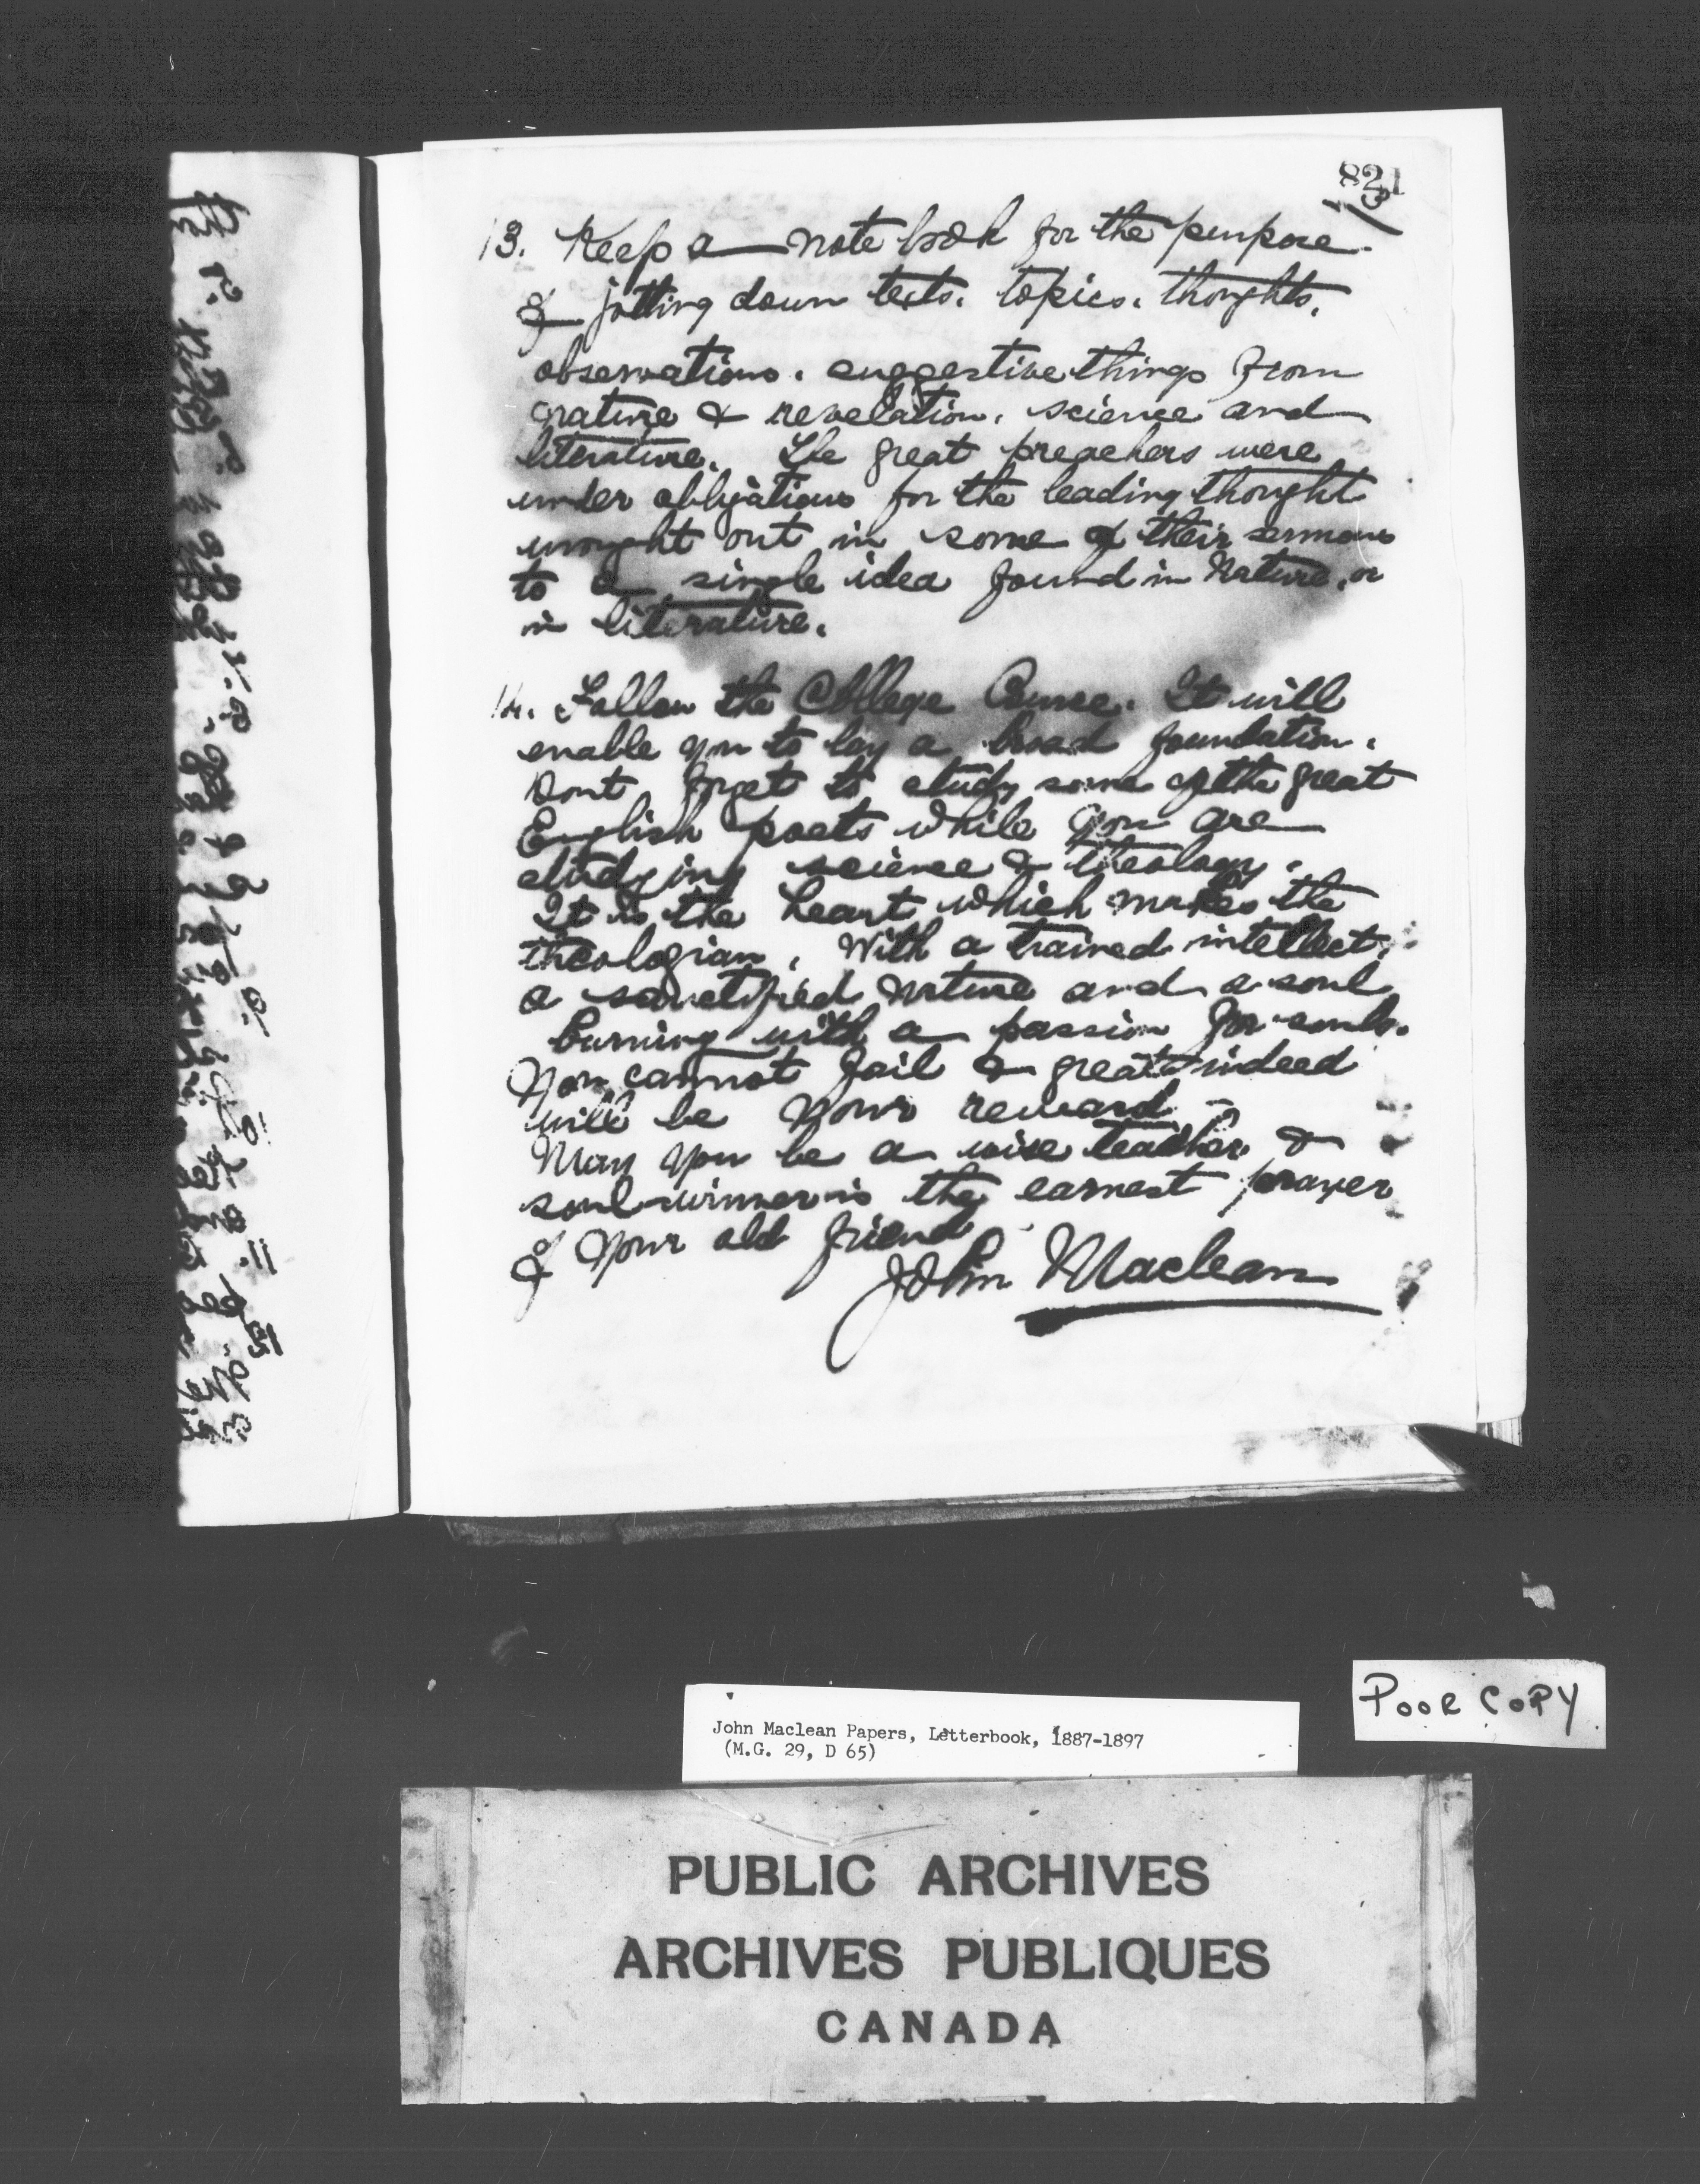 821
13. Keep a note book for the purpose
of jotting down texts, topics, thoughts,
observations, suggestive things from
nature & revelation, science and
literature. The great preachers were
under obligations for the leading thought
wrought out in some of their sermons
to a single idea found in Nature, or
in literature.
14. Follow the College Course. It will
enable you to lay a broad foundation.
Dont forget to study some of the great
English poets while you are
studying science & theology.
It is the heart which makes the
theologian. With a trained intellect,
a sanctified nature and a soul
burning with a passion for souls,
You cannot fail & great indeed
will be your reward -
May you be a wise teacher &
soul-winner is the earnest prayer
of your old friend
John Maclean
POOR COPY
John Maclean Papers, Letterbook, 1887-1897
(M.G. 29, D 65)
PUBLIC ARCHIVES
ARCHIVES PUBLIQUES
CANADA